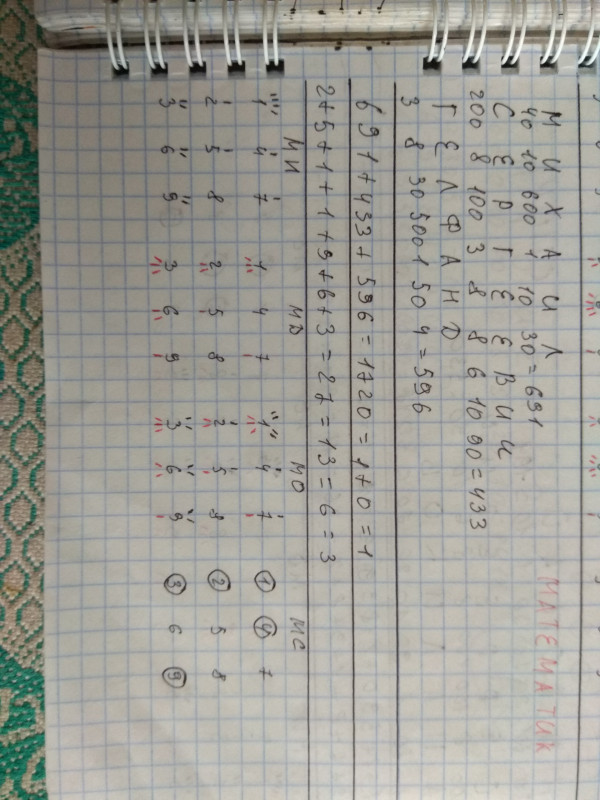 МАТЕМАТИК
М И Х А И Л
40 10 600 1 10 30 = 691
С Е Р Г Е Е В И Ч
200 8 100 3 8 8 6 10 90 = 433
Г Е Л Ф А Н Д
3 8 30 500 1 50 4 = 596
691+433+596=1720=1+0=1
2+5+1+1+9+6+3=27=13=6=3
МИ МД МО МС
1 4 7 1 4 7 1 4 7 1 4 7
2 5 8 2 5 8 2 5 8 2 5 8
3 6 9 3 6 9 3 6 9 3 6 9